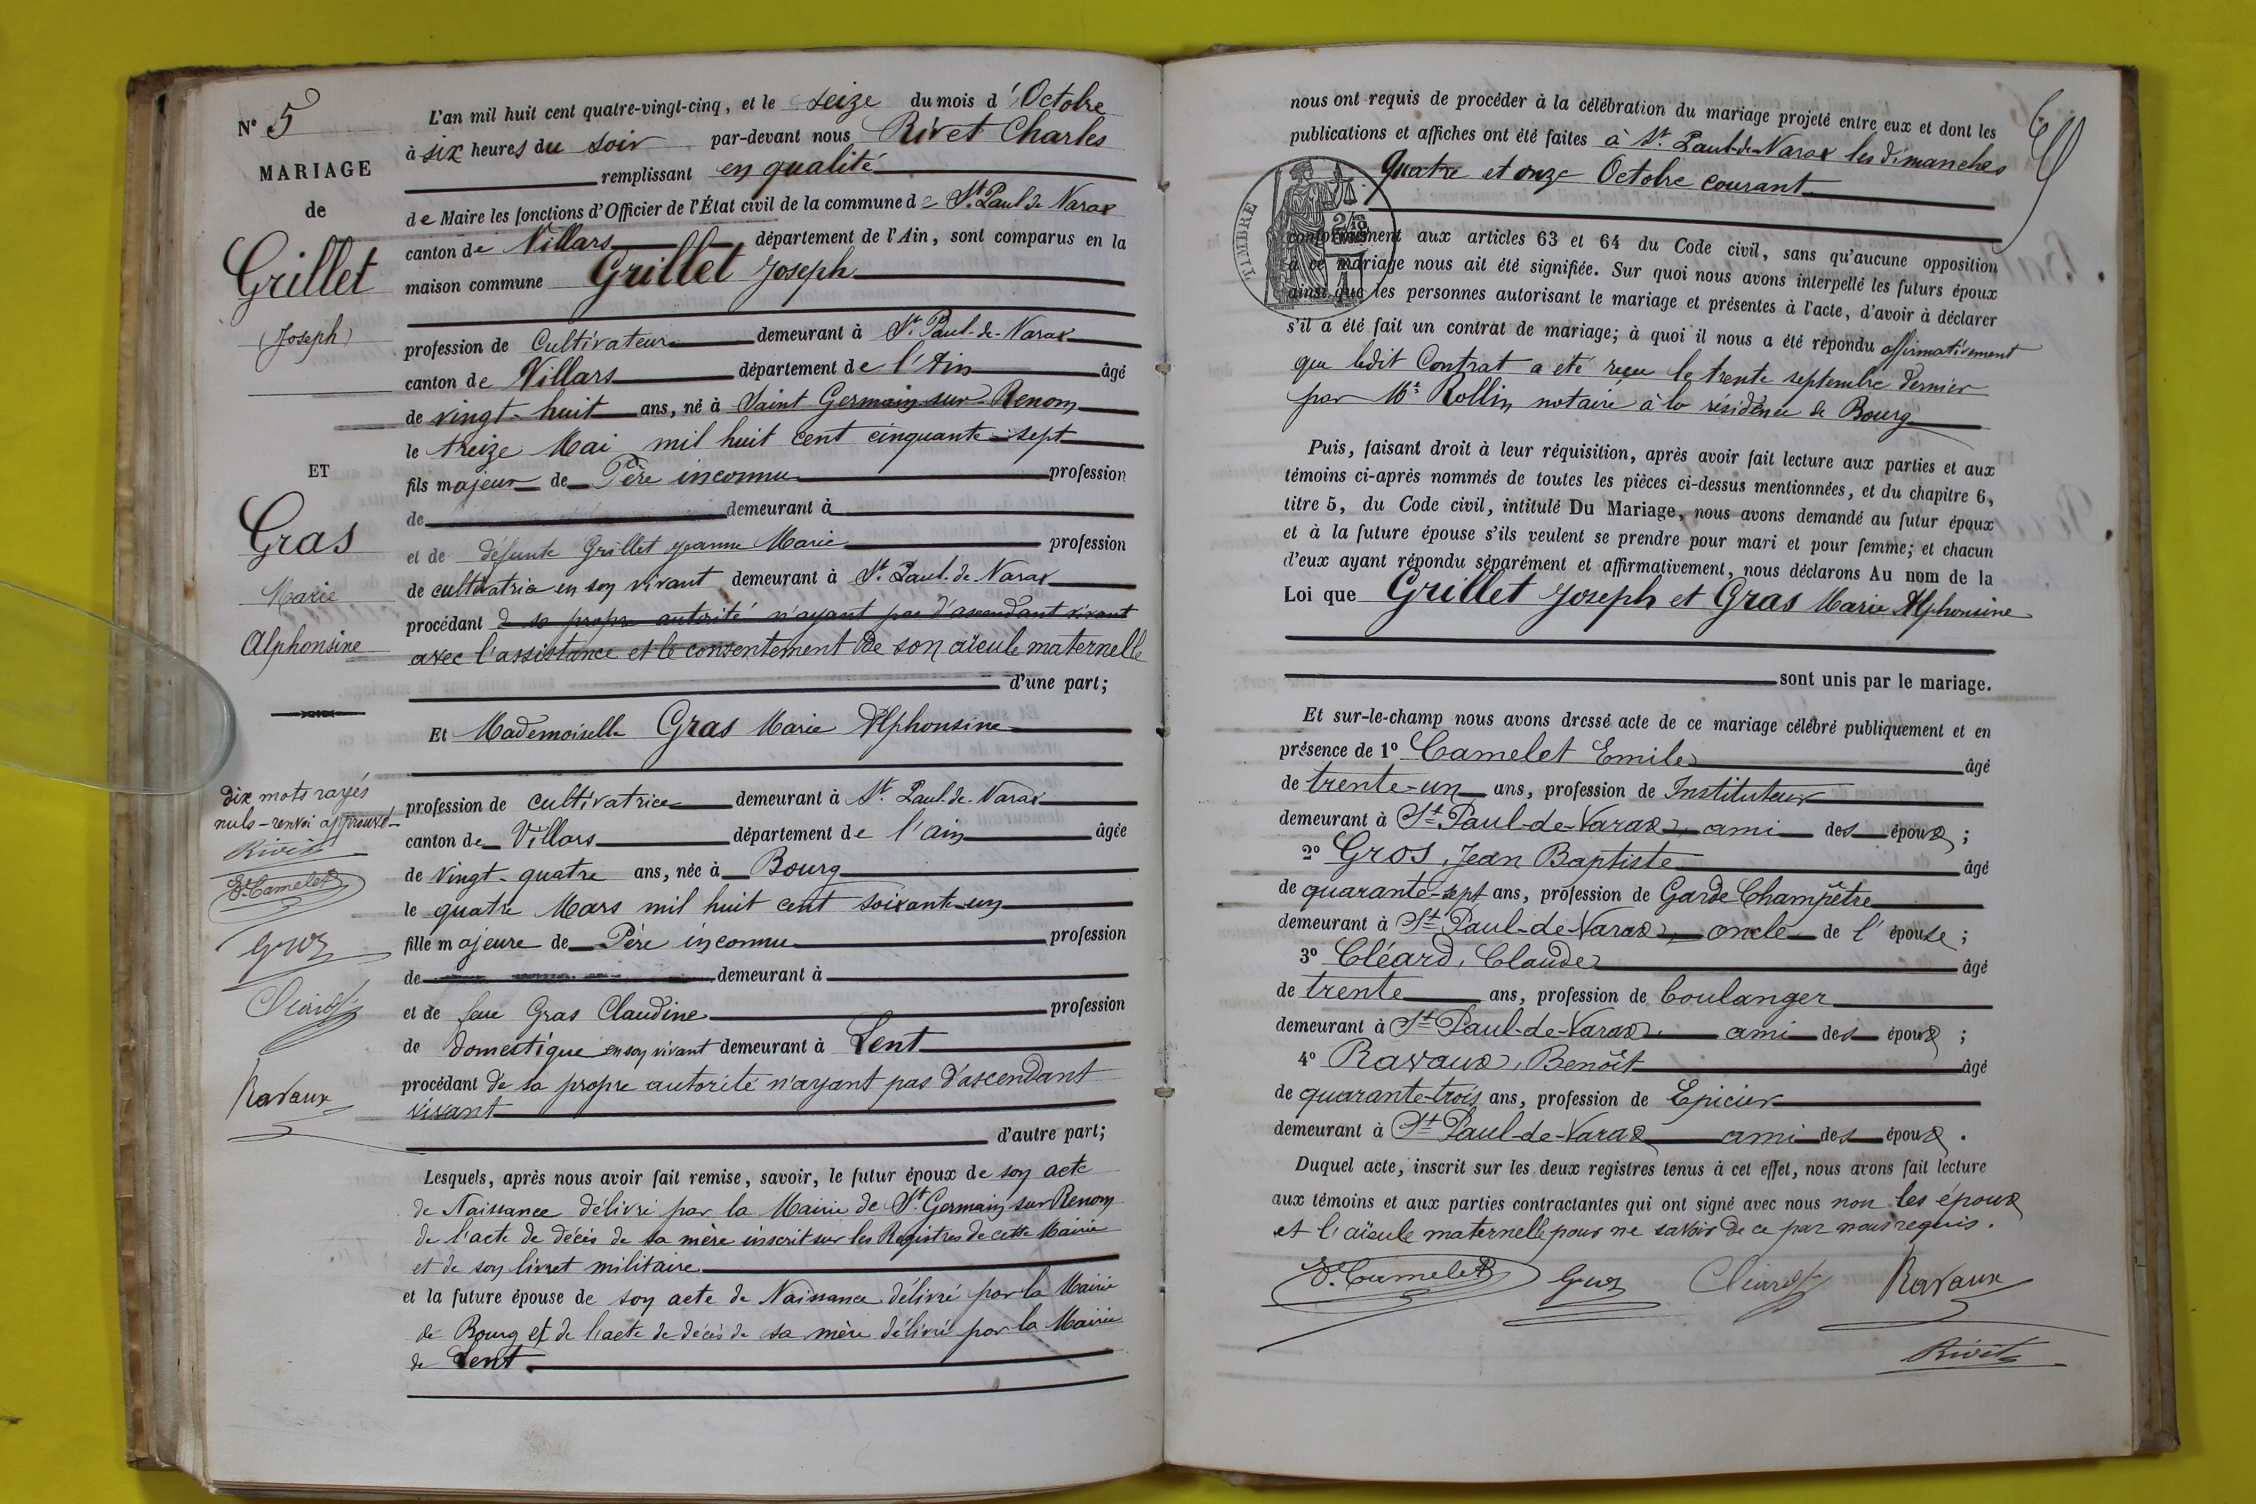 N° 5
MARIAGE
de
Grillet
Joseph
ET
Gras
Marie
Alphonsine
dix mots rayés
nuls - renvoi approuvé -
Rivet
E. Camelet
Gros
Cléard
Ravaux
L'an mil huit cent quatre-vingt-cinq, et le seize du mois d'Octobre
à six heures du soir par-devant nous Rivet Charles
remplissant en qualité
de Maire les fonctions d'Officier de l'État civil de la commune de St Paul de Varax
canton de Villars département de l'Ain, sont comparus en la
maison commune Grillet Joseph
profession de Cultivateur demeurant à St Paul-de-Varax
canton de Villars département de l'Ain âgé
de vingt-huit ans, né à Saint Germain sur Renom
le treize Mai mil huit cent cinquante-sept
fils majeur de Père inconnu profession
de demeurant à
et de défunte Grillet Jeanne Marie profession
de cultivatrice en son vivant demeurant à St Paul-de-Varax
procédant de sa propre autorité n'ayant pas d'ascendant vivant
avec l'assistance et le consentement de son aïeule maternelle
d'une part;
Et Mademoiselle Gras Marie Alphonsine
profession de cultivatrice demeurant à St Paul-de-Varax
canton de Villars département de l'Ain âgée
de vingt-quatre ans, née à Bourg
le quatre Mars mil huit cent soixante-un
fille majeure de Père inconnu profession
de demeurant à
et de feue Gras Claudine profession
de domestique en son vivant demeurant à Lent
procédant de sa propre autorité n'ayant pas d'ascendant
vivant
d'autre part;
Lesquels, après nous avoir fait remise, savoir, le futur époux de son acte
de Naissance délivré par la Mairie de St Germain sur Renom
de l'acte de décès de sa mère inscrit sur les Registres de cette Mairie
et de son livret militaire
et la future épouse de son acte de Naissance délivré par la Mairie
de Bourg et de l'acte de décès de sa mère délivré par la Mairie
de Lent
nous ont requis de procéder à la célébration du mariage projeté entre eux et dont les
publications et affiches ont été faites à St Paul-de-Varax les dimanches
Quatre et onze Octobre courant
TIMBRE
conformément aux articles 63 et 64 du Code civil, sans qu'aucune opposition
à ce mariage nous ait été signifiée. Sur quoi nous avons interpellé les futurs époux
ainsi que les personnes autorisant le mariage et présentes à l'acte, d'avoir à déclarer
s'il a été fait un contrat de mariage; à quoi il nous a été répondu affirmativement
que ledit Contrat a été reçu le trente septembre dernier
par Me Rollin notaire à la résidence de Bourg
Puis, faisant droit à leur réquisition, après avoir fait lecture aux parties et aux
témoins ci-après nommés de toutes les pièces ci-dessus mentionnées, et du chapitre 6,
titre 5, du Code civil, intitulé Du Mariage, nous avons demandé au futur époux
et à la future épouse s'ils veulent se prendre pour mari et pour femme; et chacun
d'eux ayant répondu séparément et affirmativement, nous déclarons Au nom de la
Loi que Grillet Joseph et Gras Marie Alphonsine
sont unis par le mariage.
Et sur-le-champ nous avons dressé acte de ce mariage célébré publiquement et en
présence de 1° Camelet Emile âgé
de trente-un ans, profession de Instituteur
demeurant à St Paul-de-Varax, ami des époux;
2° Gros, Jean Baptiste âgé
de quarante-sept ans, profession de Garde Champêtre
demeurant à St Paul-de-Varax, oncle de l'épouse;
3° Cléard, Claude âgé
de trente ans, profession de boulanger
demeurant à St Paul-de-Varax, ami des époux;
4° Ravaux, Benoît âgé
de quarante-trois ans, profession de Epicier
demeurant à St Paul-de-Varax ami des époux.
Duquel acte, inscrit sur les deux registres tenus à cet effet, nous avons fait lecture
aux témoins et aux parties contractantes qui ont signé avec nous non les époux
et l'aïeule maternelle pour ne savoir de ce par nous requis.
E. Camelet Gros Cléard Ravaux
Rivet